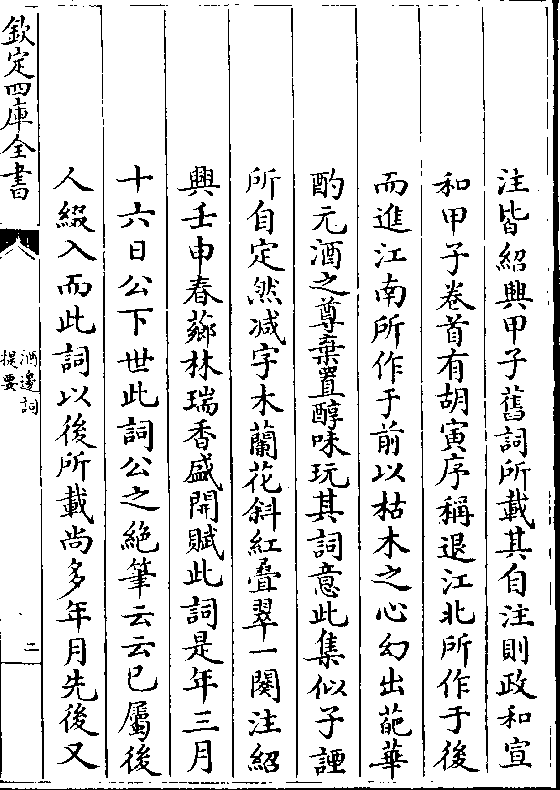 注皆紹興甲子舊詞所載其自注則政和宣
和甲子卷首有胡寅序稱退江北所作于後
而進江南所作于前以枯木之心幻出葩華
酌元酒之尊棄置醇味玩其詞意此集似子諲
所自定然减字木蘭花斜紅疊翠一闋注紹
興壬申春薌林瑞香盛開賦此詞是年三月
十六日公下世此詞公之絶筆云云已屬後
人綴入而此詞以後所載尚多年月先後又
欽定四庫全書
酒邊詞
提要
二